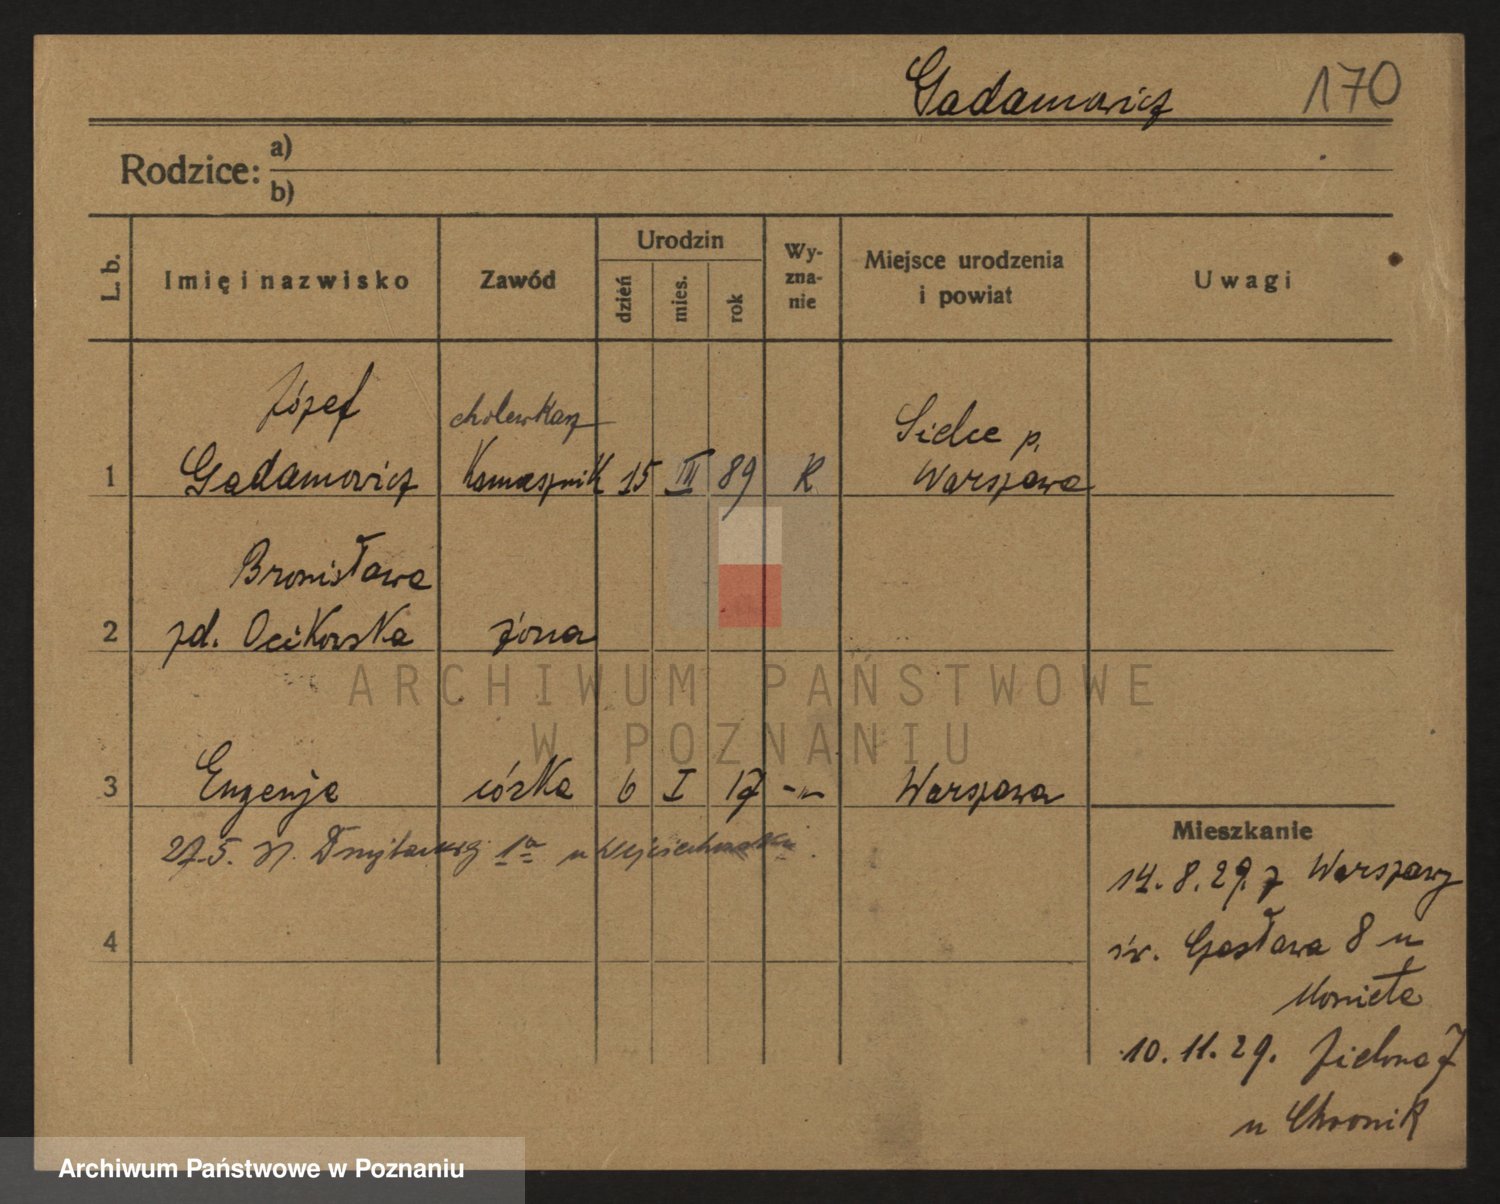 Gadamowicz 170
Rodzice: a)
b)
L. b. Imię i nazwisko Zawód Urodzin dzień mies. rok Wy-zna-nie Miejsce urodzenia i powiat Uwagi
Józef cholewkarz Sielce p.
1 Gadamowicz Kamasznik 15 III 89 K Warszawa
Bronisława
2 zd. Ocikowska żona
3 Eugenja córka 6 I 17 -„- Warszawa
Mieszkanie
27.5. 1a u
14.8.29. z Warszawy
4
św. Czesława 8 u
10.11.29. Zielona 7
u Chronik
ARCHIWUM PAŃSTWOWE
W POZNANIU
Archiwum Państwowe w Poznaniu